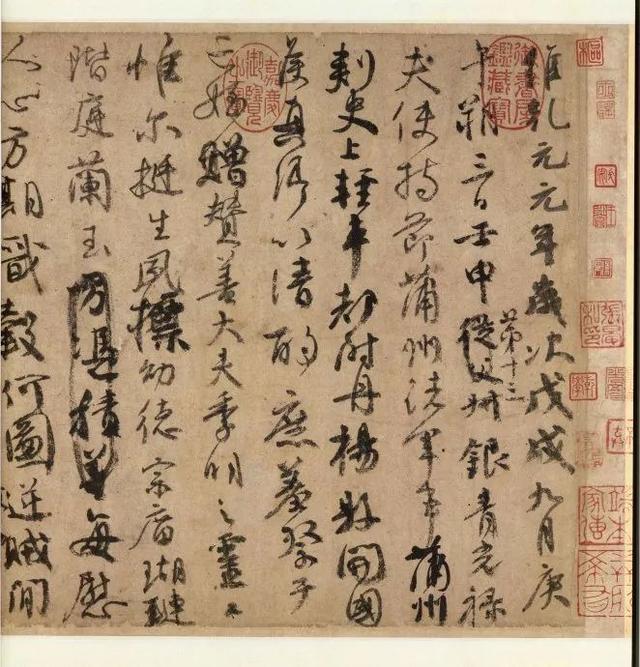 維乾元元年歲次戊戌九月庚
午朔三日壬申從父第十三叔銀青光祿
夫使持節蒲州諸軍事蒲州
刺史上輕車都尉丹楊縣開國
侯真卿以清酌庶羞祭于
亡姪贈贊善大夫季明之靈曰
惟爾挺生夙標幼德宗廟瑚璉
階庭蘭玉方憑積善每慰
人心方期戩穀何圖逆賊閒
御書房鑑藏寶
嘉慶御覽之寶